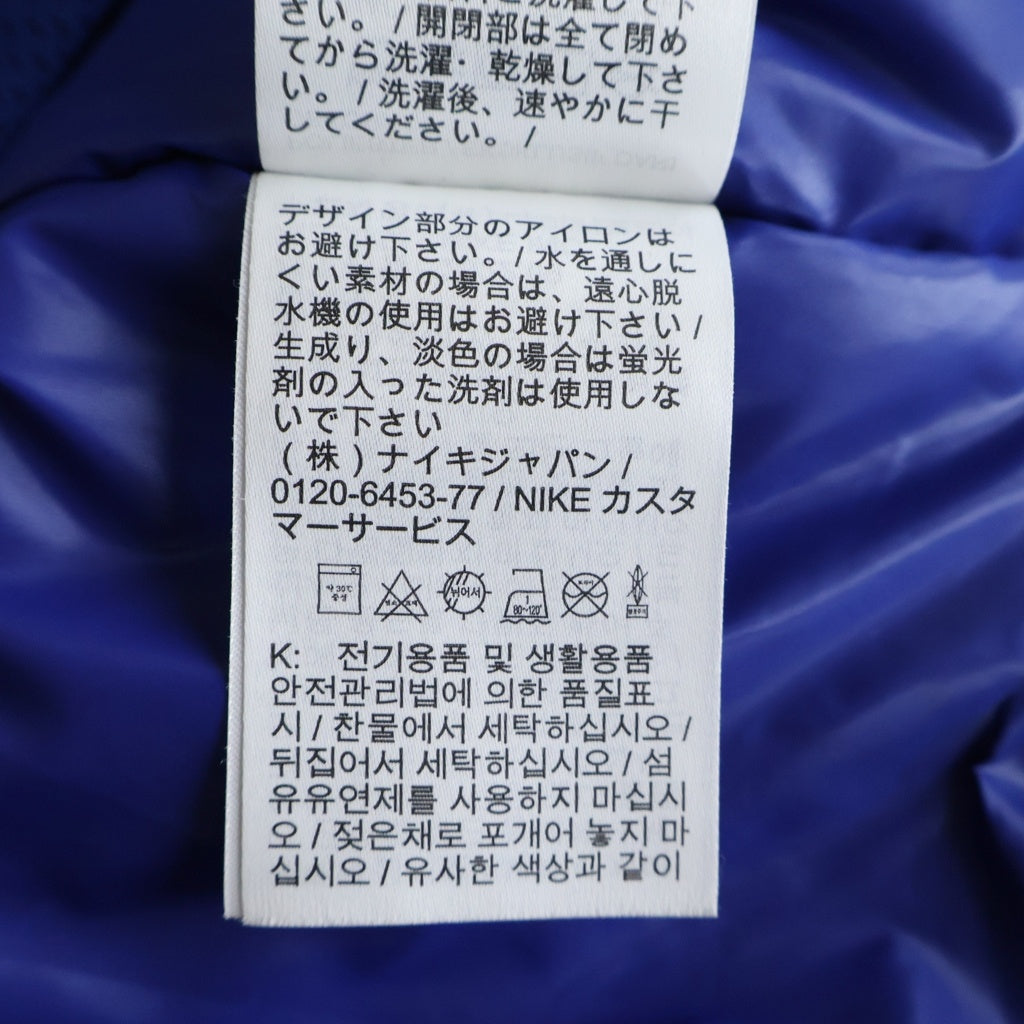 さい。 / 開閉部は全て閉め
てから洗濯・乾燥して下さ
い。 / 洗濯後、速やかに干
してください。 /
デザイン部分のアイロンは
お避け下さい。 / 水を通しに
くい素材の場合は、遠心脱
水機の使用はお避け下さい /
生成り、淡色の場合は蛍光
剤の入った洗剤は使用しな
いで下さい
(株)ナイキジャパン /
0120-6453-77 / NIKE カスタ
マーサービス
약 30℃
중성
뒤어서
80~120℃
K: 전기용품 및 생활용품
안전관리법에 의한 품질표
시 / 찬물에서 세탁하십시오 /
뒤집어서 세탁하십시오 / 섬
유유연제를 사용하지 마십시
오 / 젖은채로 포개어 놓지 마
십시오 / 유사한 색상과 같이